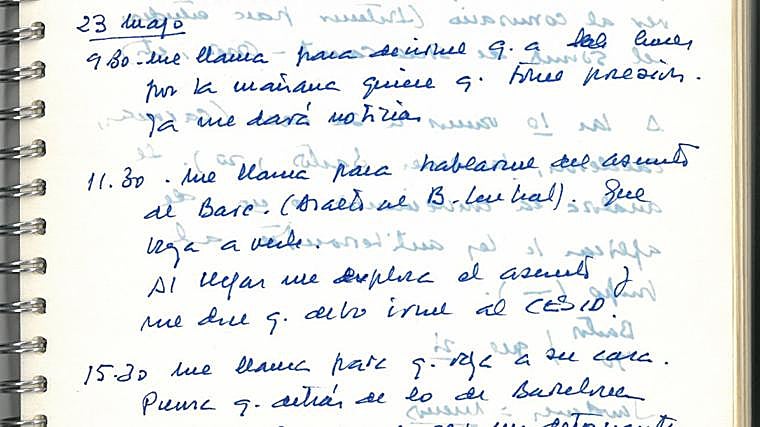 23 mayo
9,30 - me llama para decirme q. a las horas
por la mañana quiere q. tome posesión.
Ya me dará noticias
11.30 . me llama para hablarme del asunto
de Barc. (Asalto al B. Central). Que
vaya a verle.
Al llegar me explica el asunto y
me dice q. debo irme al CESID.
15.30 me llama para q. vaya a su casa.
Piensa q. detrás de lo de Barcelona